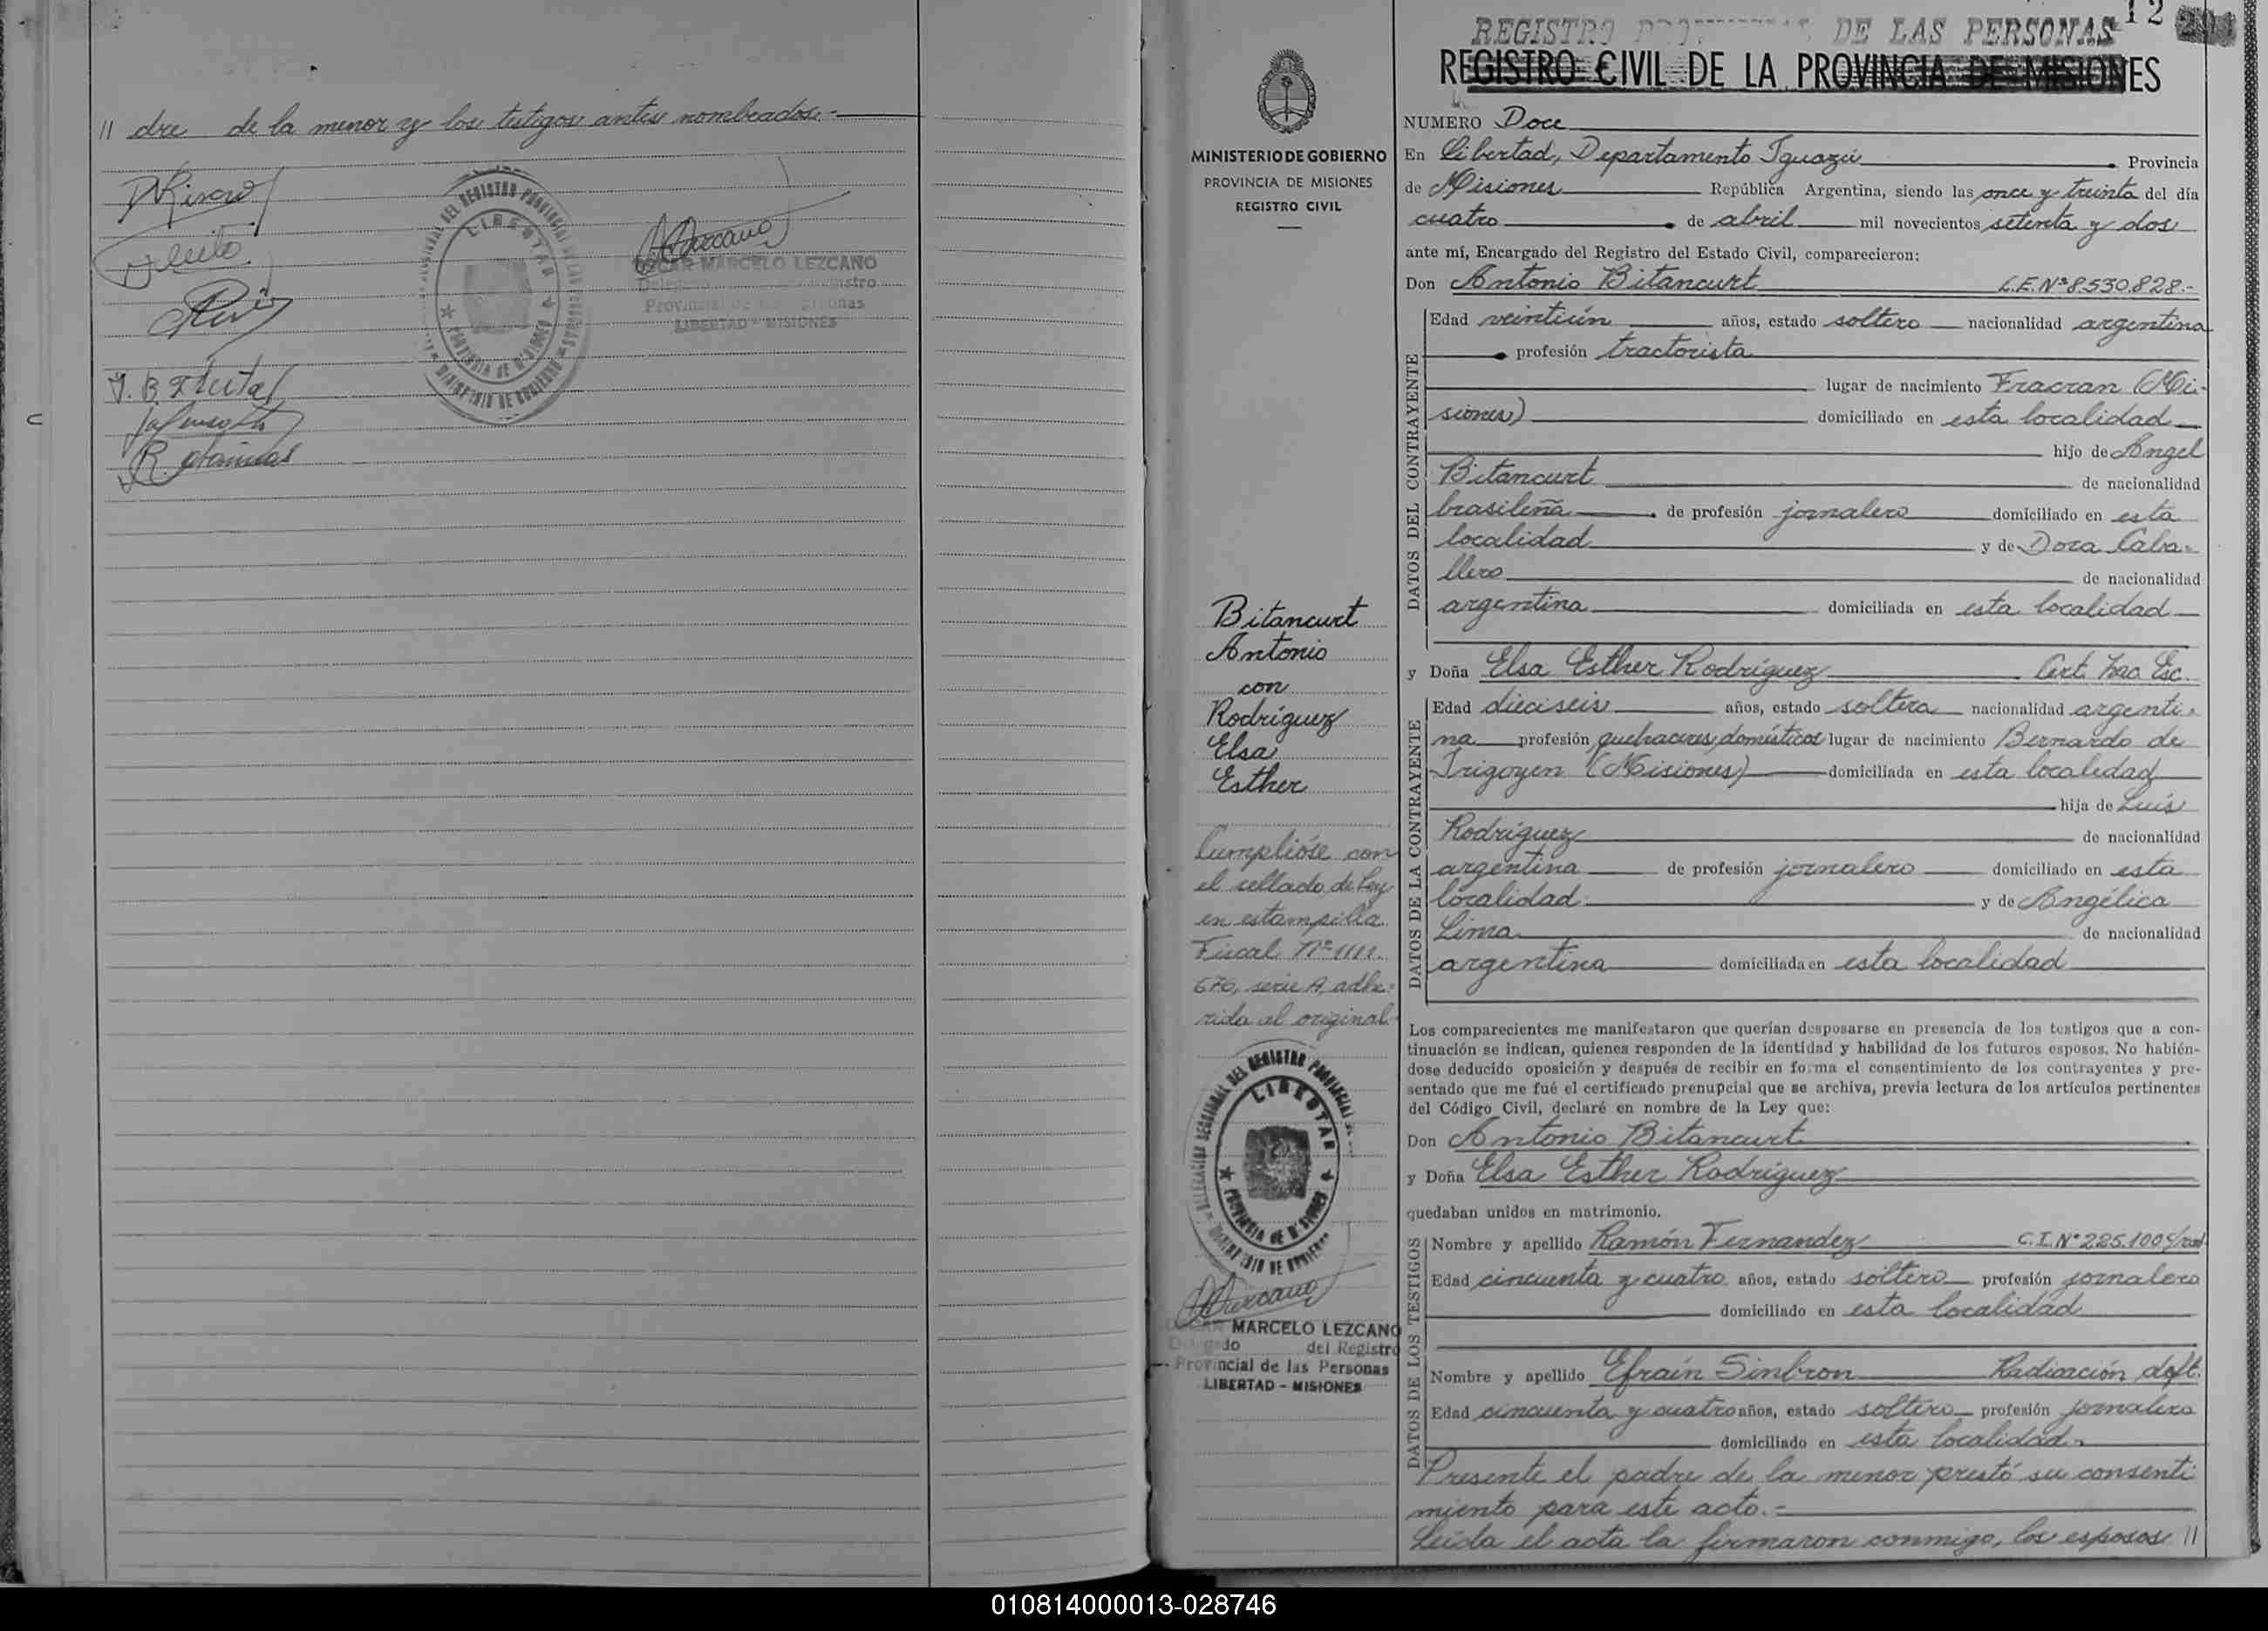 // dre de la menor y los testigos antes nombrados.-
OSCAR MARCELO LEZCANO
Provincial de las Personas
LIBERTAD - MISIONES
REGISTRO PROVINCIAL DE LAS PERSONAS
12
REGISTRO CIVIL DE LA PROVINCIA DE MISIONES
MINISTERIO DE GOBIERNO
PROVINCIA DE MISIONES
REGISTRO CIVIL
NUMERO Doce
En Libertad, Departamento Iguazú Provincia
de Misiones República Argentina, siendo las once y treinta del día
cuatro de abril mil novecientos setenta y dos
ante mí, Encargado del Registro del Estado Civil, comparecieron:
Don Antonio Bitancurt L.E. Nº 8.530.828.-
DATOS DEL CONTRAYENTE
Edad veintiún años, estado soltero nacionalidad argentina
profesión tractorista
lugar de nacimiento Fracran (Mi-
siones) domiciliado en esta localidad
hijo de Angel
Bitancurt de nacionalidad
brasileña de profesión jornalero domiciliado en esta
localidad y de Dora Caba-
llero de nacionalidad
argentina domiciliada en esta localidad
y Doña Elsa Esther Rodríguez Cert. Nac. Esc.
DATOS DE LA CONTRAYENTE
Edad dieciseis años, estado soltera nacionalidad argenti-
na profesión quehaceres domésticos lugar de nacimiento Bernardo de
Irigoyen (Misiones) domiciliada en esta localidad
hija de Luís
Rodríguez de nacionalidad
argentina de profesión jornalero domiciliado en esta
localidad y de Angélica
Lima de nacionalidad
argentina domiciliada en esta localidad
Los comparecientes me manifestaron que querían desposarse en presencia de los testigos que a con-
tinuación se indican, quienes responden de la identidad y habilidad de los futuros esposos. No habién-
dose deducido oposición y después de recibir en forma el consentimiento de los contrayentes y pre-
sentado que me fué el certificado prenupcial que se archiva, previa lectura de los artículos pertinentes
del Código Civil, declaré en nombre de la Ley que:
Don Antonio Bitancurt
y Doña Elsa Esther Rodríguez
quedaban unidos en matrimonio.
DATOS DE LOS TESTIGOS
Nombre y apellido Ramón Fernandez C.I. Nº 225.100
Edad cincuenta y cuatro años, estado soltero profesión jornalero
domiciliado en esta localidad
Nombre y apellido Efraín Sinbron Radicación deft.
Edad cincuenta y cuatro años, estado soltero profesión jornalero
domiciliado en esta localidad.
Presente el padre de la menor prestó su consenti
miento para este acto.-
Leída el acta la firmaron conmigo, los esposos //
Bitancurt
Antonio
con
Rodríguez
Elsa
Esther
Cumplióse con
el sellado de Ley
en estampilla
Fiscal Nº 1111.
670, serie A, adhe-
rida al original.
MARCELO LEZCANO
del Registro
Provincial de las Personas
LIBERTAD - MISIONES
010814000013-028746